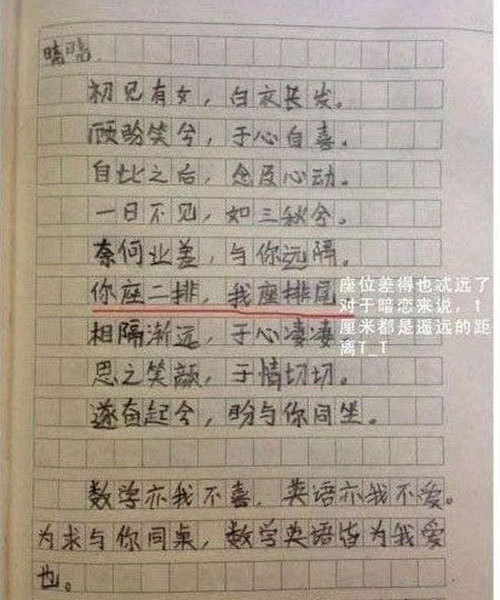 晴晴.
初见有女，白衣长发。
顾盼笑兮，于心自喜。
自此之后，念及心动。
一日不见，如三秋兮。
奈何业差，与你远隔。
你座二排，我座排尾
相隔渐远，于心凄凄
思之笑颜，于情切切。
遂奋起兮，盼与你同坐。
数学亦我不喜，英语亦我不爱。
为求与你同桌，数学英语皆为我爱
也。
座位差得也忒远了
对于暗恋来说，1
厘米都是遥远的距
离T_T